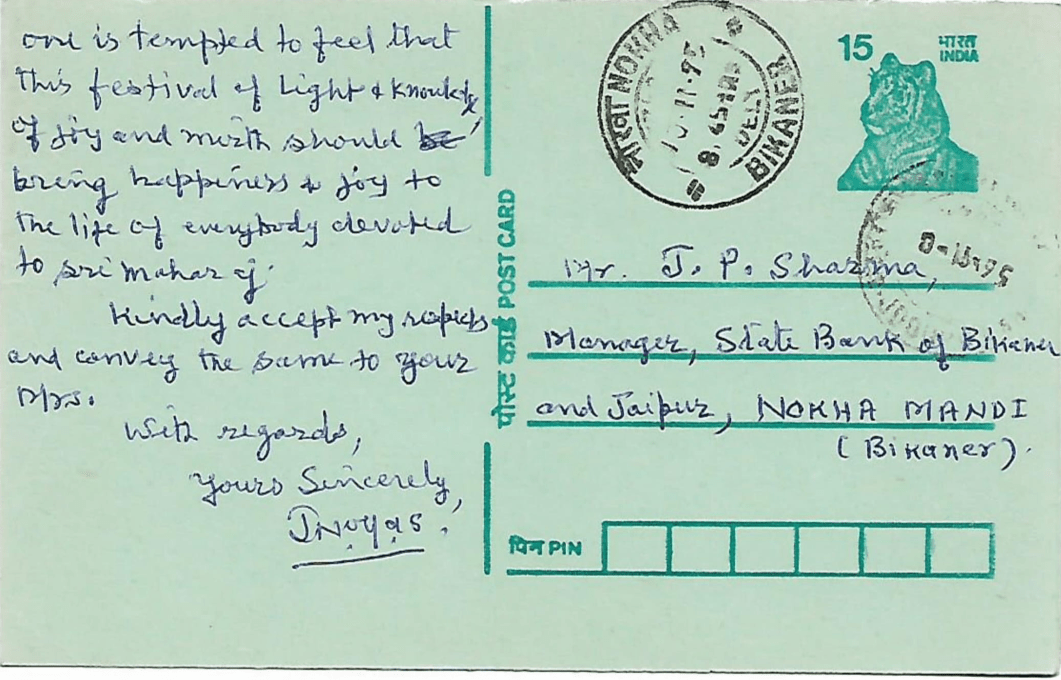 one is tempted to feel that
This festival of Light & Knowledge,
of joy and mirth should be
bring happiness & joy to
the life of everybody devoted
to sri maharaj.
Kindly accept my respects
and convey the same to your
Mrs.
With regards,
Yours Sincerely,
पोस्ट कार्ड POST CARD
15 भारत
INDIA
नोखा NOKHA
10-11-95
8.45
DELY
BIKANER
8-11-95
Mr. J. P. Sharma,
Manager, State Bank of Bikaner
and Jaipur, NOKHA MANDI
(Bikaner).
पिन PIN